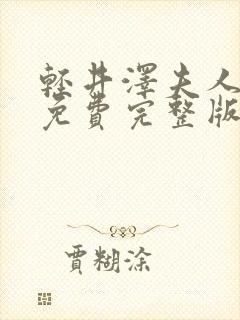 輕井澤夫人
免費完整版
賈糊涂